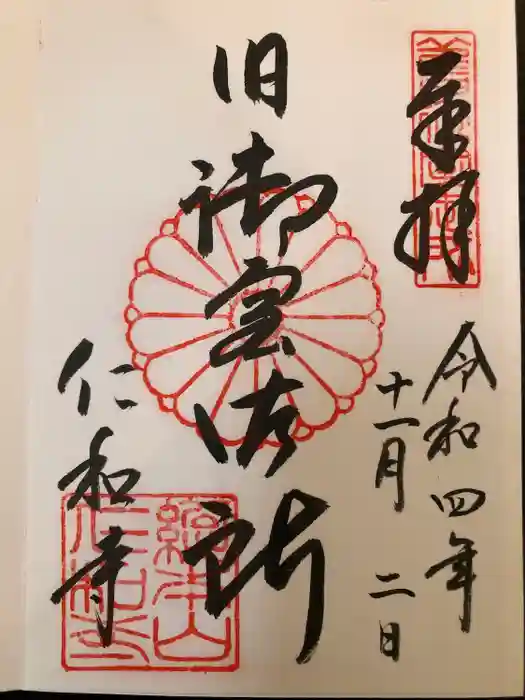 奉拝
令和四年
十一月二日
旧御室御所
仁和寺
総本山
仁和寺